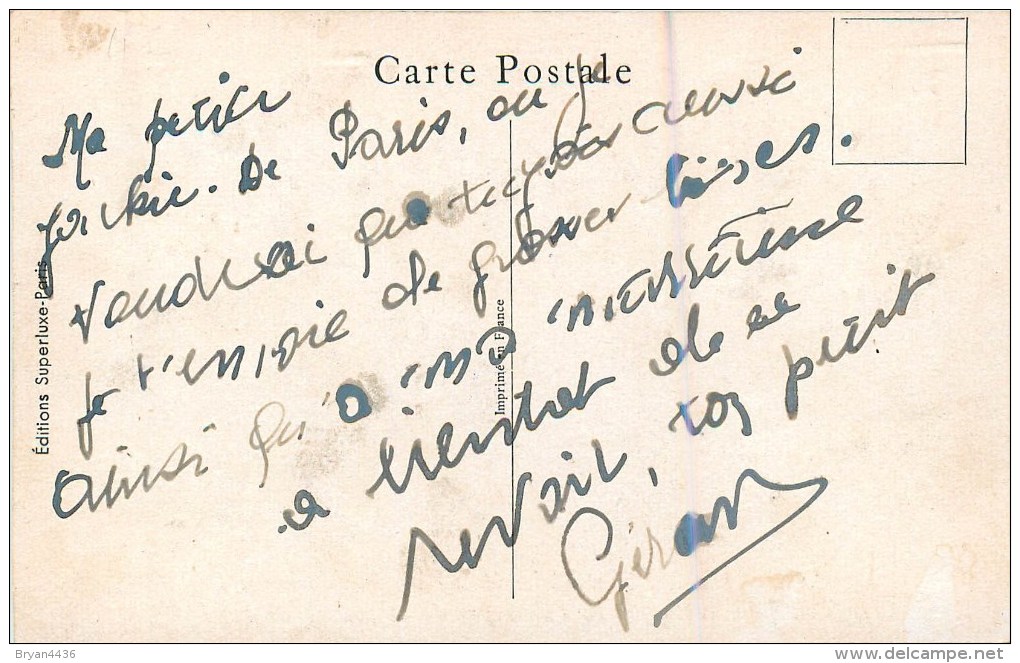 Carte Postale
Ma petite
Jackie. De Paris, ou je
voudrai que tu sois aussi
je t'envoie de grosses bises.
ainsi qu'a ma marraine
a bientot de se
revoir, ton petit
Gérard
Éditions Superluxe-Paris
Imprimé en France
Bryan4436
delcampe.net